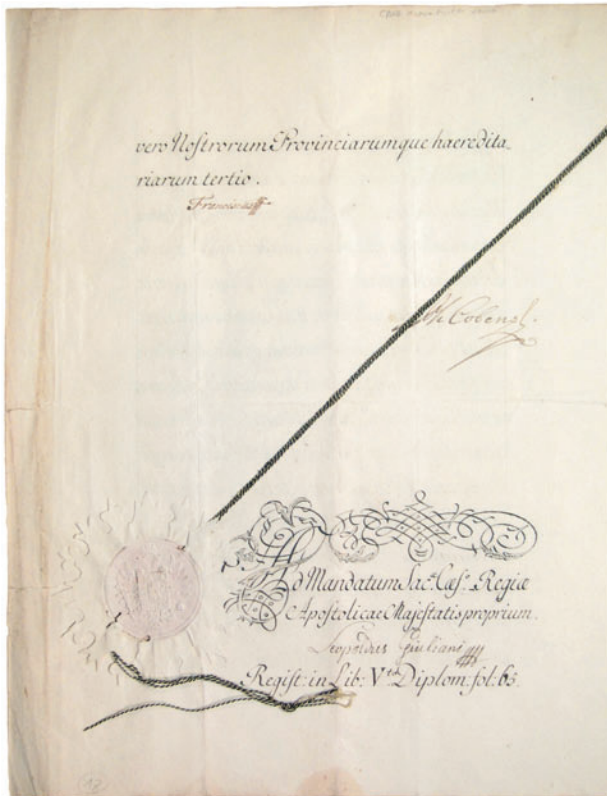 vero Noſtrorum Provinciarumque haeredita_
riarum tertio.
Franciscus
Cobenzl.
Ad Mandatum Sac.ae Cæs.ae Regiæ
Apoſtolicae Majeſtatis proprium.
Leopoldus Giuliani
Regiſt: in Lib: V.to Diplom: fol: 63.